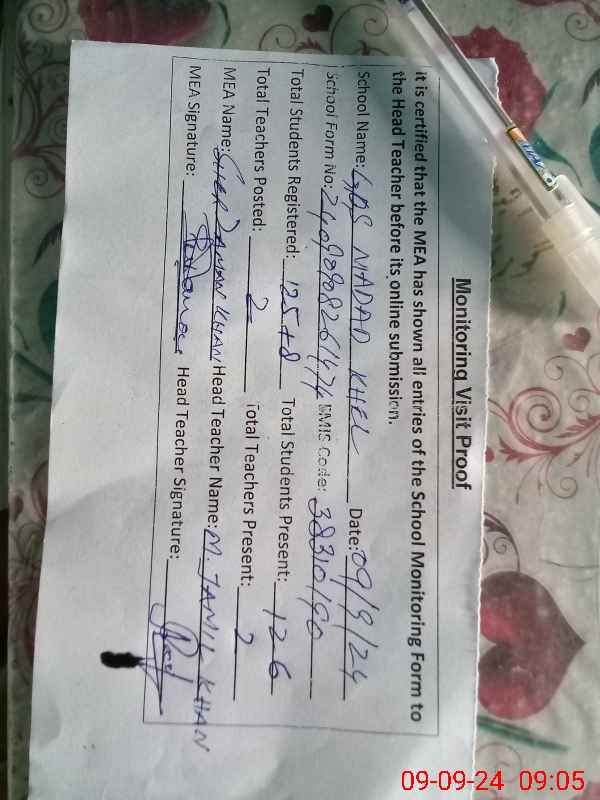 Monitoring Visit Proof
it is certified that the MEA has shown all entries of the School Monitoring Form to
the Head Teacher before its online submission.
School Name: GPS MADAD KHEL Date: 09/9/24
School Form No: EMIS Code: 38310190
Total Students Registered: 125+8 Total Students Present: 126
Total Teachers Posted: 2 Total Teachers Present: 2
MEA Name: SHER ZAMAN KHAN Head Teacher Name: M. JAMIL KHAN
MEA Signature: Head Teacher Signature:
09-09-24 09:05